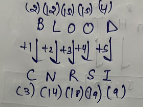 (2) (12) (15) (15) (4)
B L O O D
+1↓ +2↓ +3↓ +4↓ +5↓
C N R S I
(3) (14) (18) (19) (9)